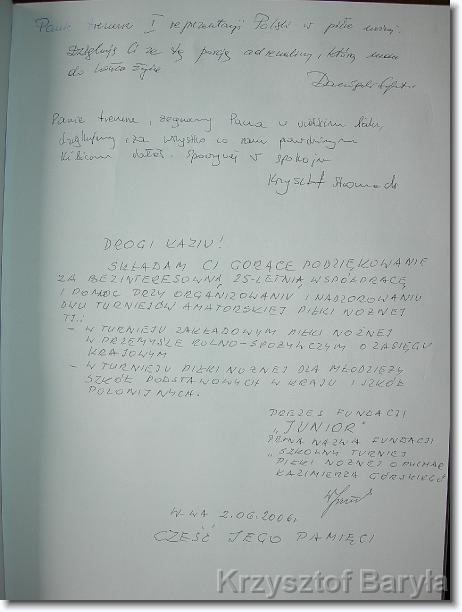 Panie trenerze I reprezentacji Polski w piłce nożnej.
Dziękuję Ci za tą porcję adrenaliny, którą mam
do końca życia
Panie trenerze, żegnamy Pana w wielkim żalu,
dziękujemy za wszystko co nam prawdziwym
kibicom dałeś. Spoczywaj w spokoju
Krysztof
DROGI KAZIU!
SKŁADAM CI GORĄCE PODZIĘKOWANIE
ZA BEZINTERESOWNĄ 25-LETNIĄ WSPÓŁPRACĘ
I POMOC PRZY ORGANIZOWANIU I NADZOROWANIU
DWU TURNIEJÓW AMATORSKIEJ PIŁKI NOŻNEJ
TJ.:
- W TURNIEJU ZAKŁADOWYM PIŁKI NOŻNEJ
W PRZEMYŚLE ROLNO-SPOŻYWCZYM O ZASIĘGU
KRAJOWYM
- W TURNIEJU PIŁKI NOŻNEJ DLA MŁODZIEŻY
SZKÓŁ PODSTAWOWYCH W KRAJU I SZKÓŁ
POLONIJNYCH.
PREZES FUNDACJI
„JUNIOR"
PEŁNA NAZWA FUNDACJI
„SZKOLNY TURNIEJ
PIŁKI NOŻNEJ O PUCHAR
KAZIMIERZA GÓRSKIEGO"
W-WA 2.06.2006r.
CZEŚĆ JEGO PAMIĘCI
Krzysztof Baryła